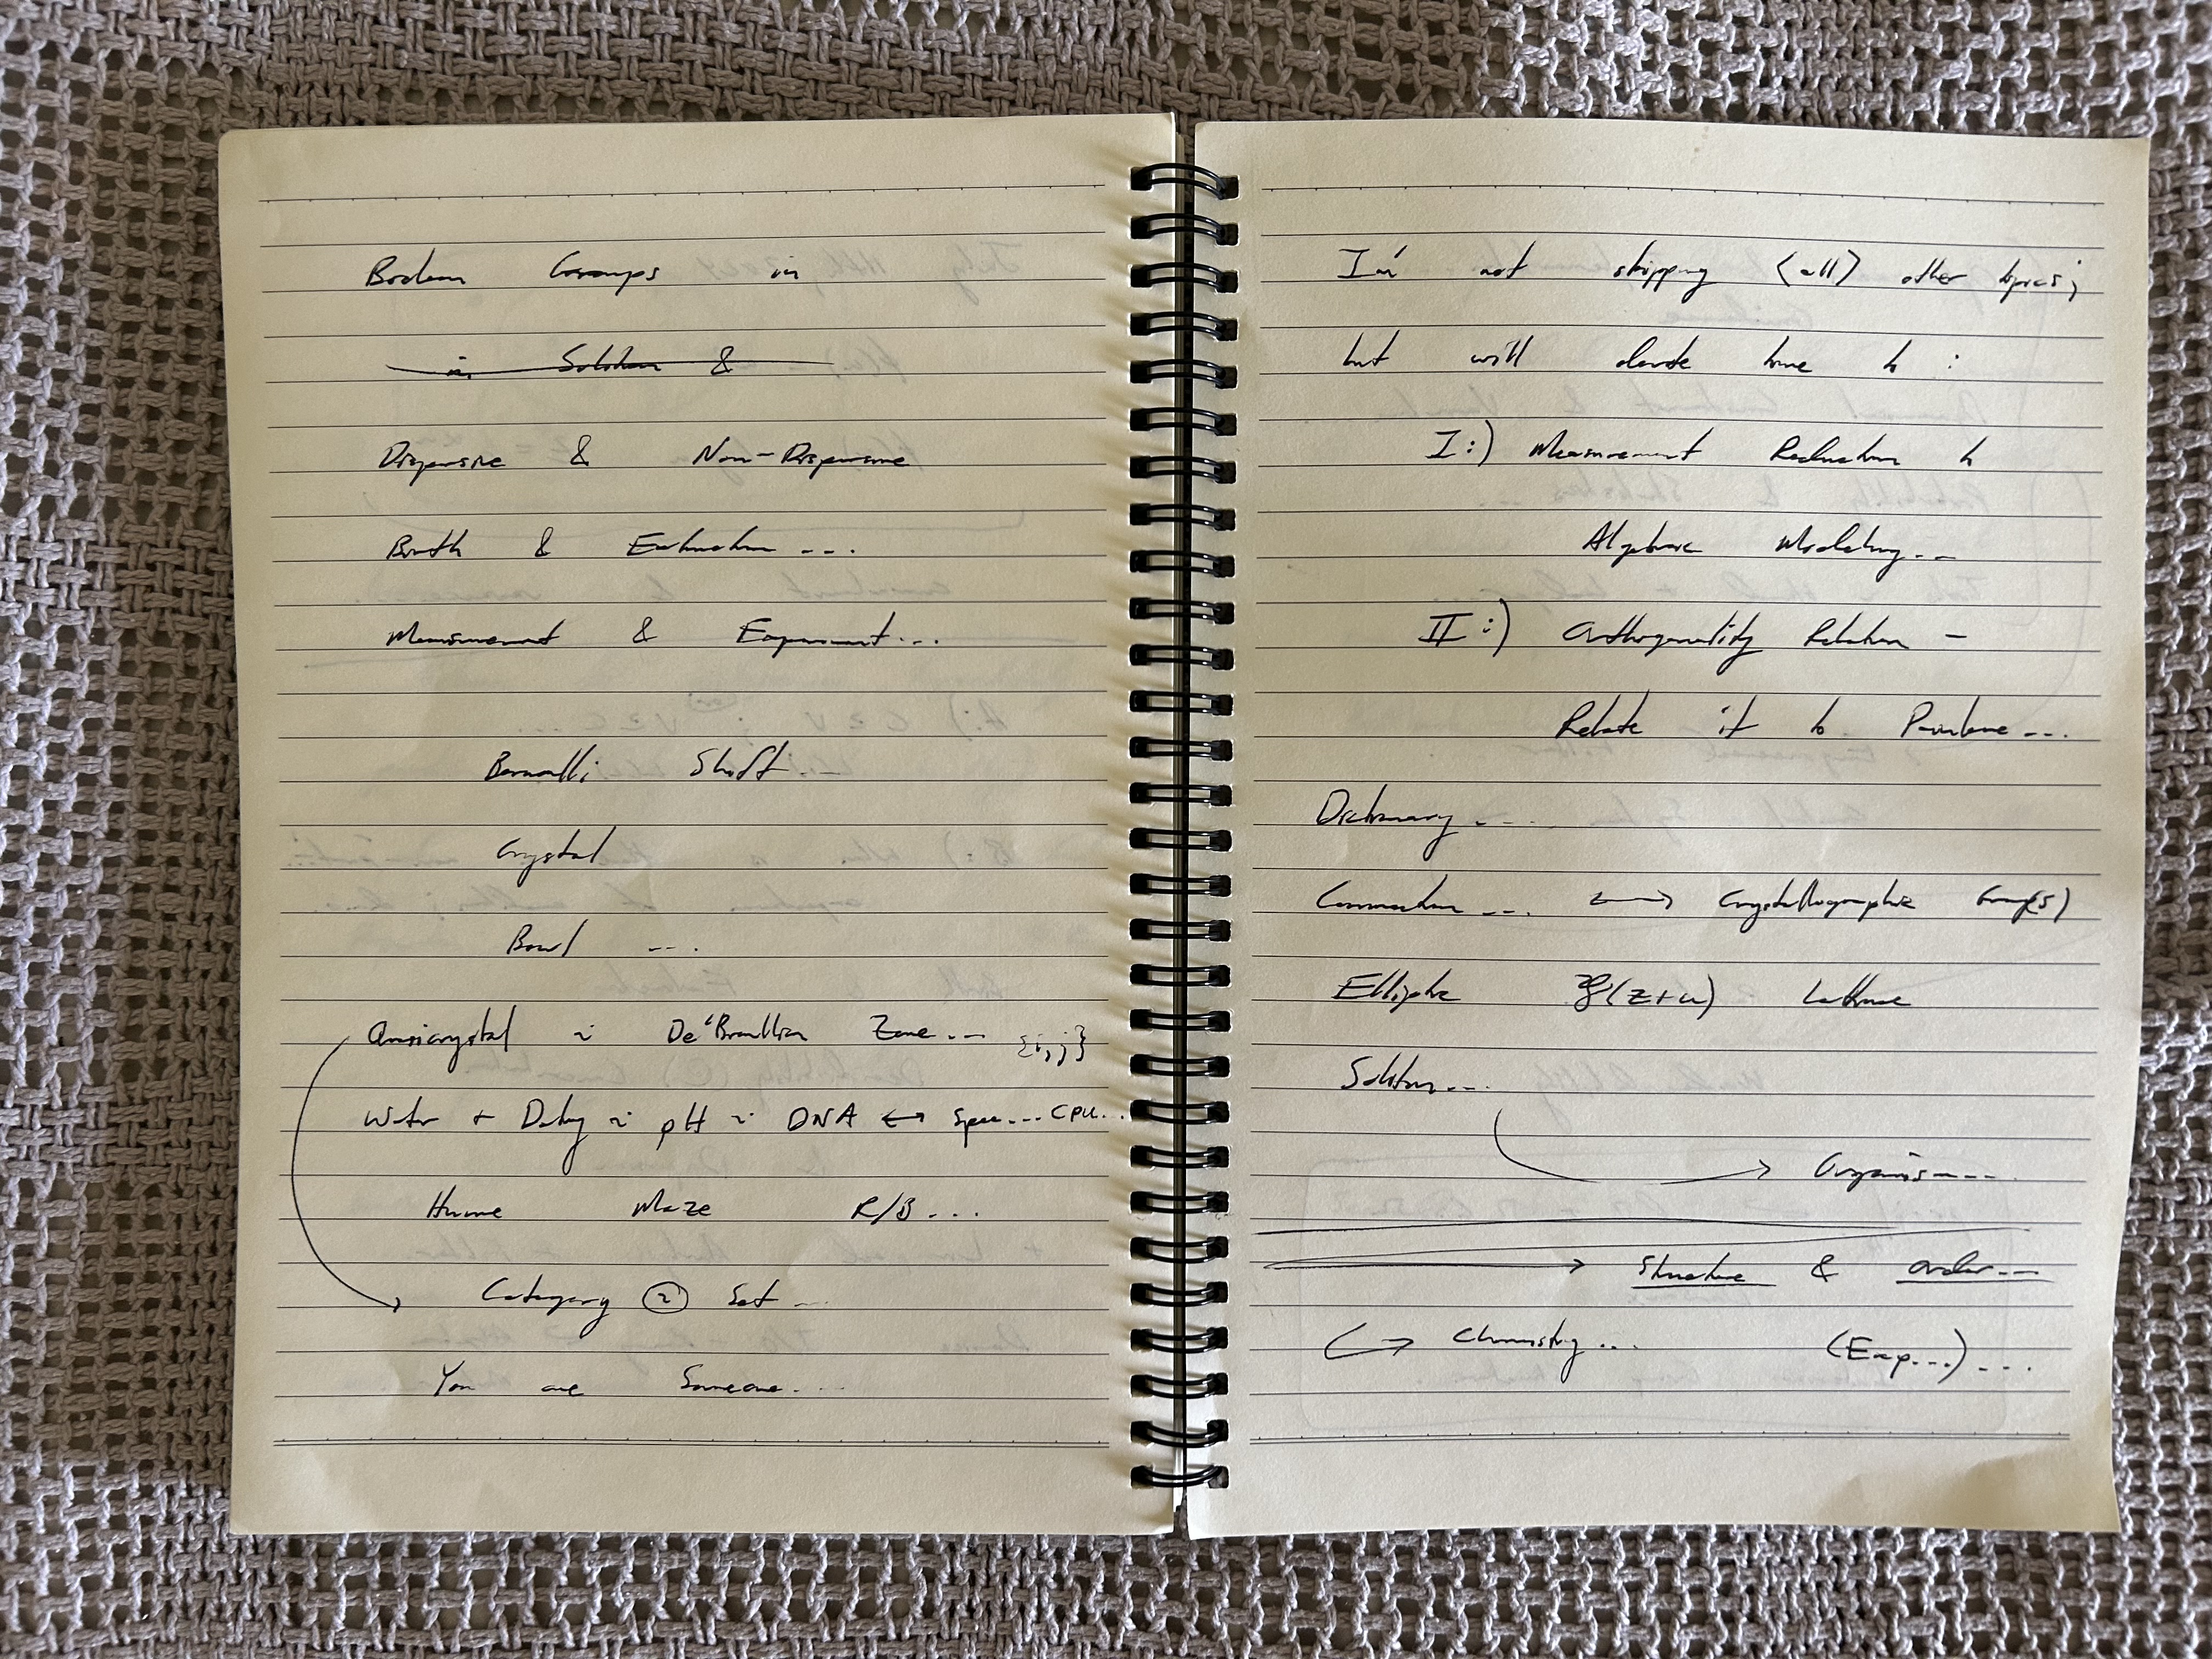 Boolean Groups in
in Solution &
Dispersive & Non-Dispersive
Birth & Extinction ---
Measurement & Experiment...
Bernoulli Shift...
Crystal
Bowl ---.
Quasicrystal ~ De'Broullian Zone... {i,j}
Water + Dating ~ pH ~ DNA ↔ Spec.... CPU...
Hume Maze R/B...
Category ~ Set ...
You are Someone...
I'm not skipping (all) other topics;
but will devote time to :
I:) Measurement Reduction to
Algebraic Modeling...
II:) Orthogonality Relation -
Relate it to Painleve...
Dictionary ....
Connection .... ↔ Crystallographic Group(s)
Elliptic ℘(z+w) Lattice
Soliton...
→ Organis----.
→ Structure & Order...
↪ Chemistry... (Exp...)....